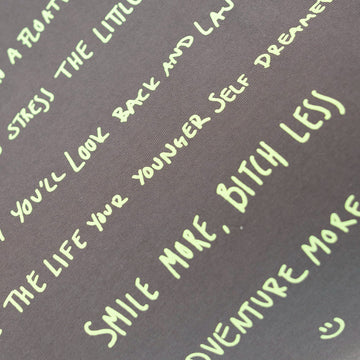 A FLOAT
STRESS THE LITTL
YOU'LL LOOK BACK AND LAU
THE LIFE YOUR YOUNGER SELF DREAMED
SMILE MORE, BITCH LESS
DVENTURE MORE